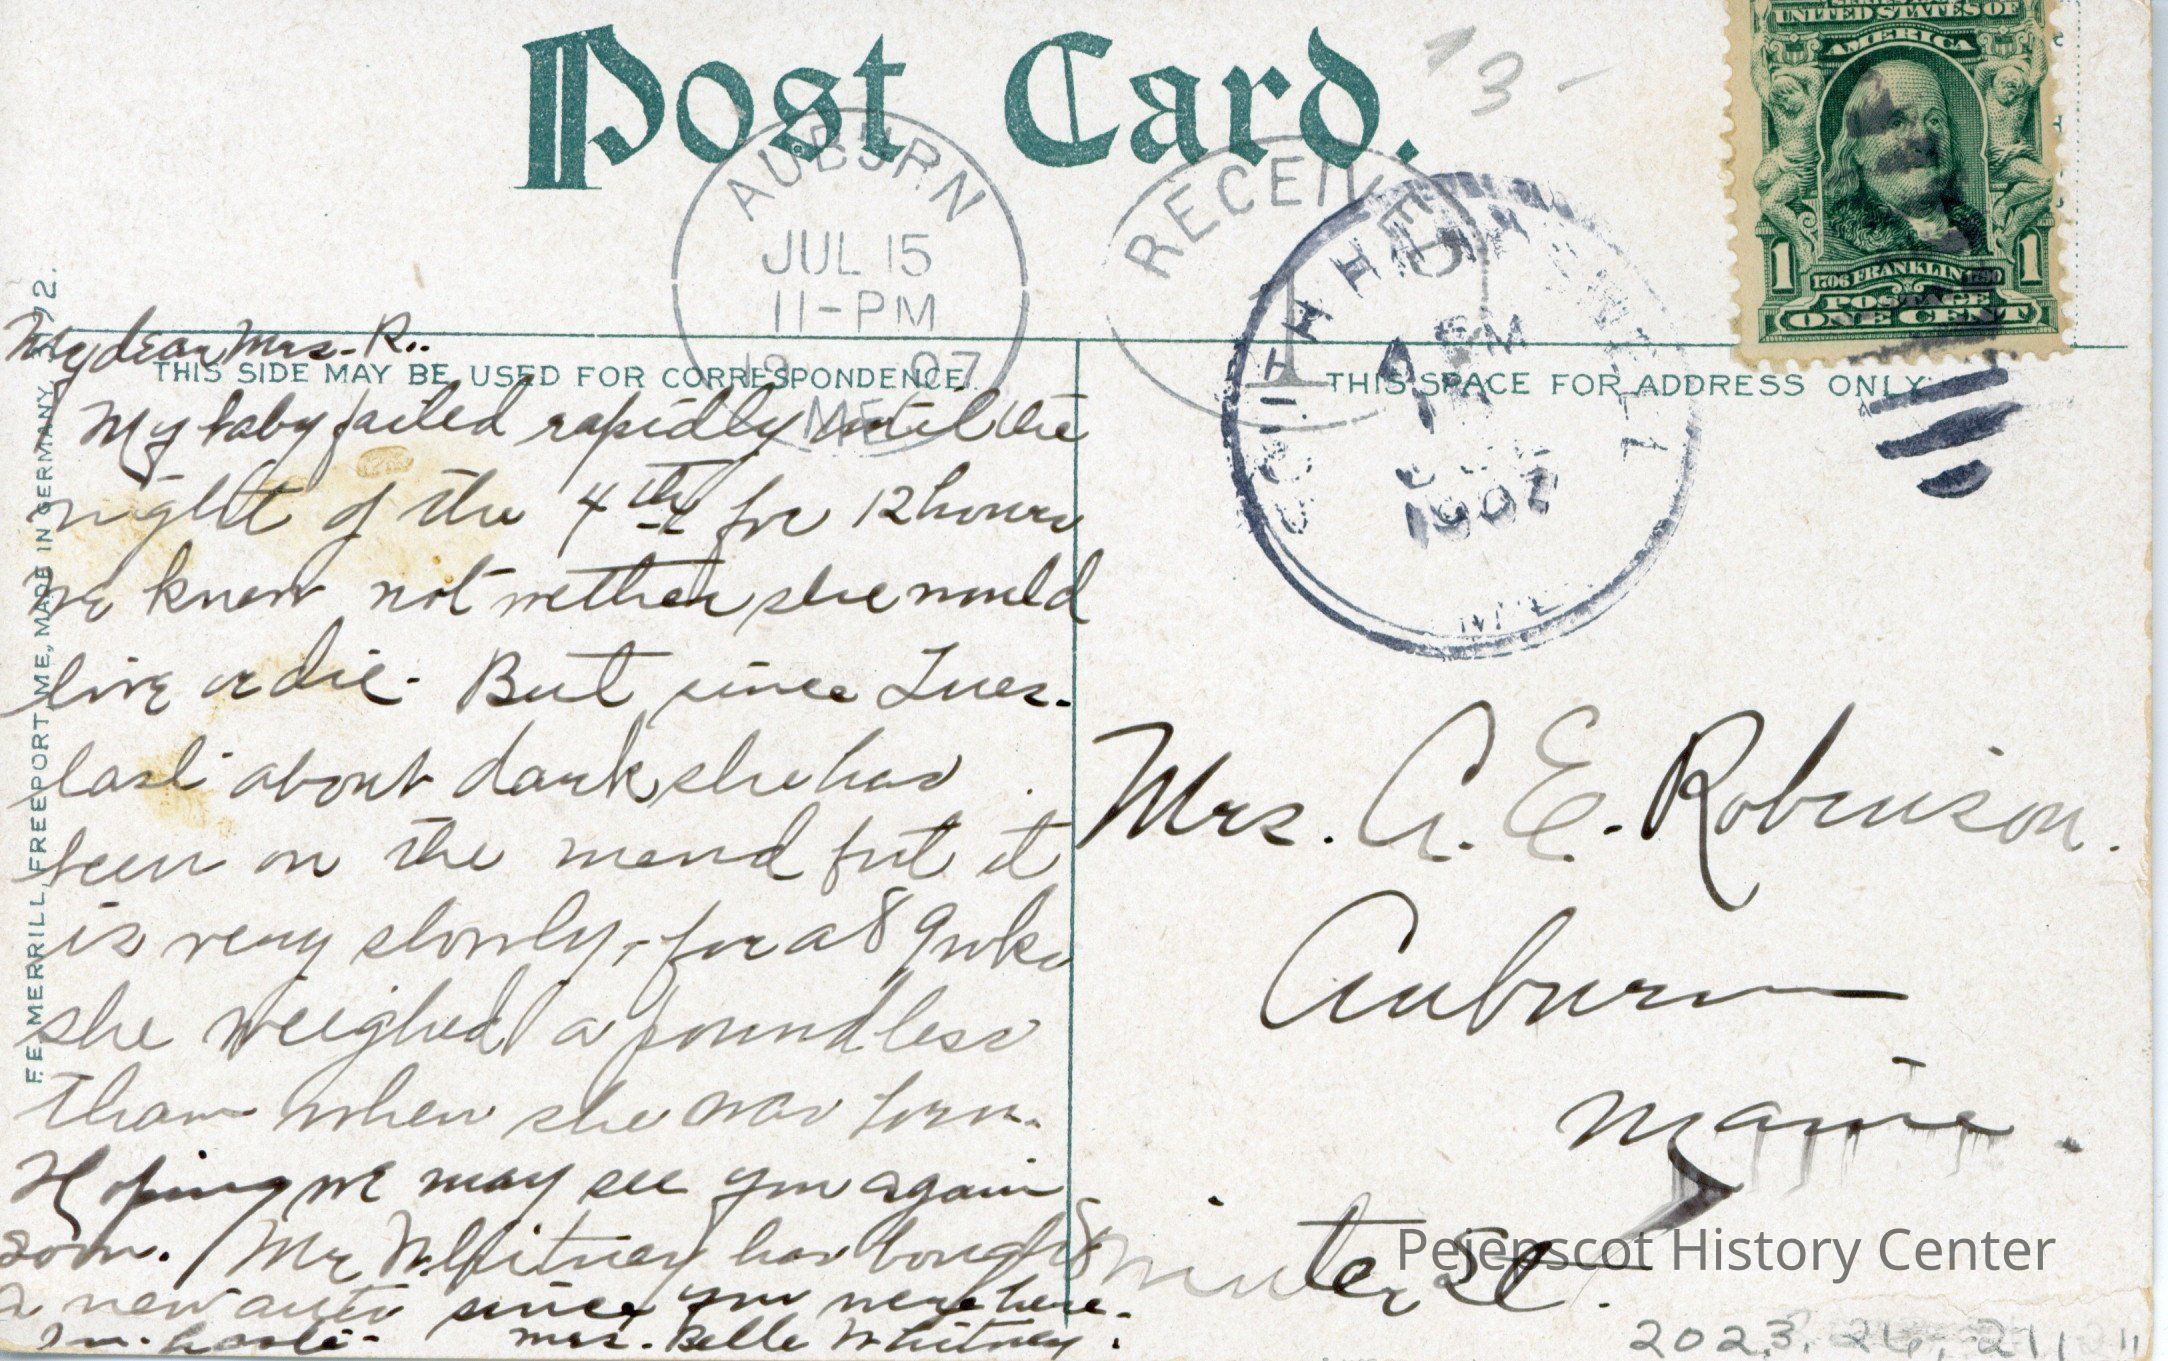 Post Card.
13-
SERIES 1902
UNITED STATES OF
AMERICA
1 1706 FRANKLIN 1790 1
POSTAGE
ONE CENT
AUBURN
JUL 15
11-PM
19 07
ME.
RECEIVED
1
1907
ME.
THIS SIDE MAY BE USED FOR CORRESPONDENCE.
THIS SPACE FOR ADDRESS ONLY
F. E. MERRILL, FREEPORT, ME., MADE IN GERMANY
My dear Mrs. R..
My baby failed rapidly until the
night of the 4th for 12 hours
we knew not wether she would
live or die. But since Tues.
last about dark she has
been on the mend but it
is very slowly, - for at 8 9 wks
she weighed a pound less
than when she was born.
Hoping we may see you again
soon. Mr Whitney has bought
a new auto since you were here.
In haste- Mrs. Belle Whitney.
Mrs. C. E. Robinson.
Auburn
Maine.
8 Winter St.
Pejepscot History Center
2023.26.211